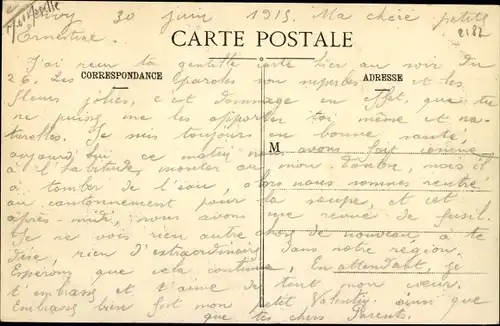 30 juin 1915. Ma chère petite
2182
Ernestine.
CARTE POSTALE
J'ai reçu ta gentille carte hier au soir du
CORRESPONDANCE
ADRESSE
26. Les paroles son superbes et les
fleurs jolies, c'est dommage en effet, que tu
ne puisse me les apporter toi même et na-
turelles. Je suis toujours en bonne santé,
M
aujourd'hui ce matin nous avons fait comme
à l'habitude, monter au mon Double, mais il
à tomber de l'eau, alors nous sommes rentré
au cantonnement pour la soupe, et cet
après-midi, nous avons une revue de fusil.
Je ne vois rien autre chose de nouveau à te
dire, rien d'extraordinaire dans notre région.
Espérons que cela continue, En attendant, je
t'embrasse et t'aime de tout mon cœur.
Embrasse bien fort mon petit Valentin ainsi que
que tes chers Parents.